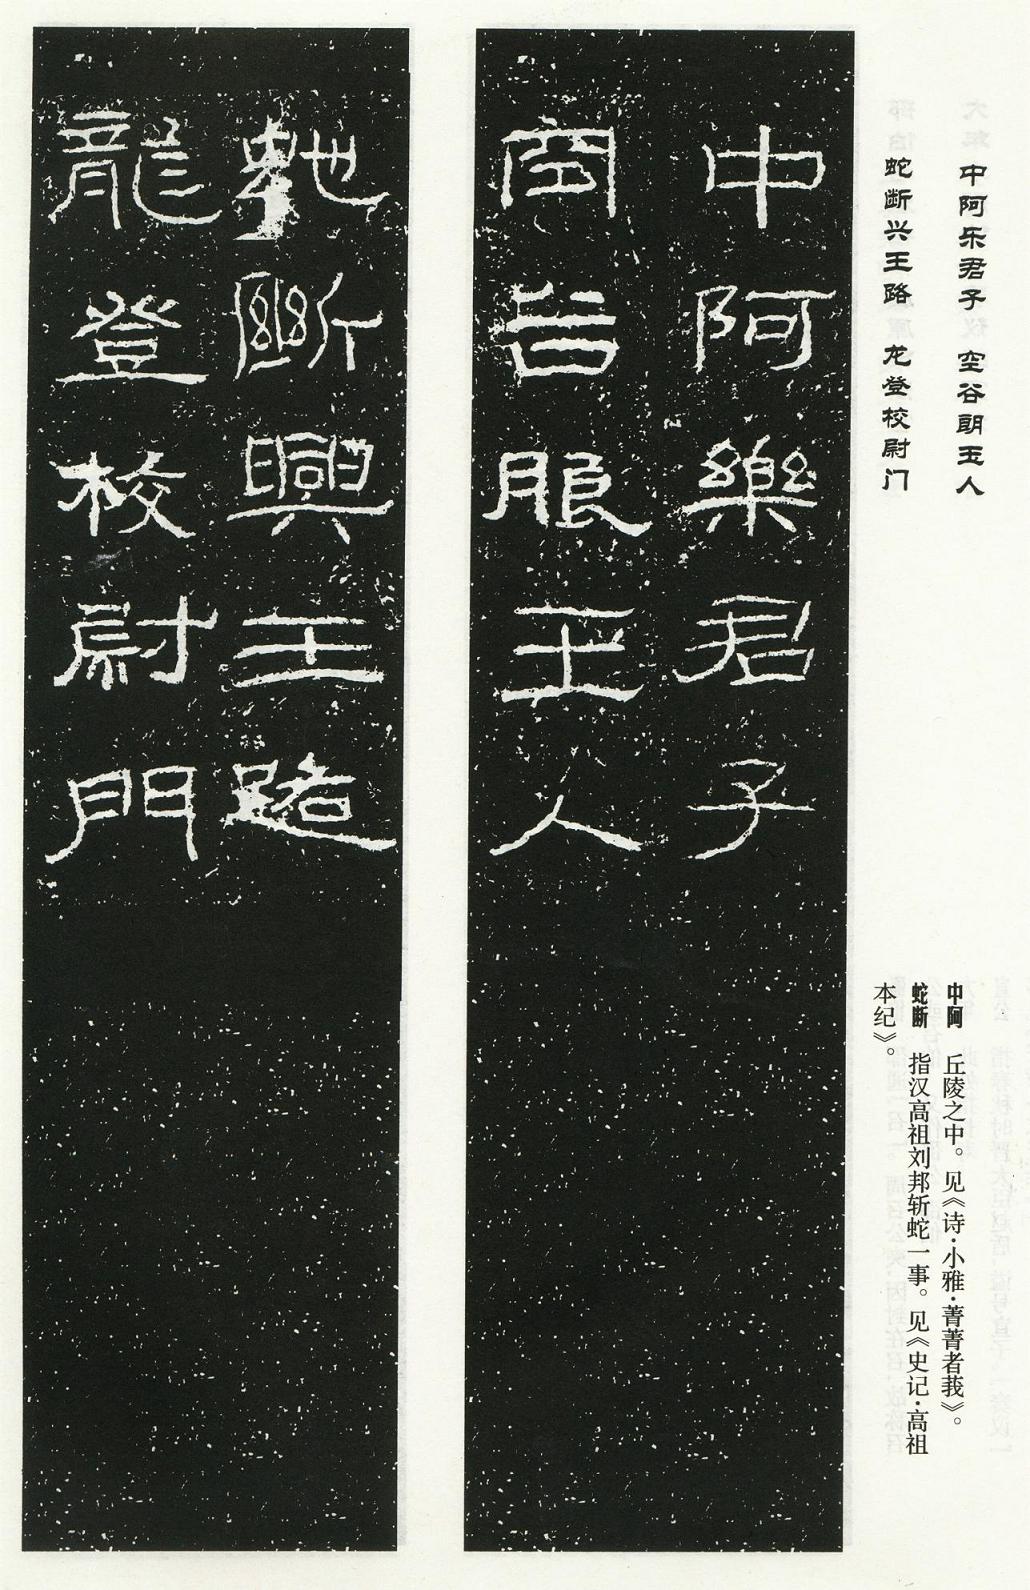 中阿乐君子 空谷朗玉人
蛇断兴王路 龙登校尉门
中阿 丘陵之中。见《诗·小雅·菁菁者莪》。
蛇断 指汉高祖刘邦斩蛇一事。见《史记·高祖
本纪》。
中阿樂君子
王人
斷興王路
龍登校尉門